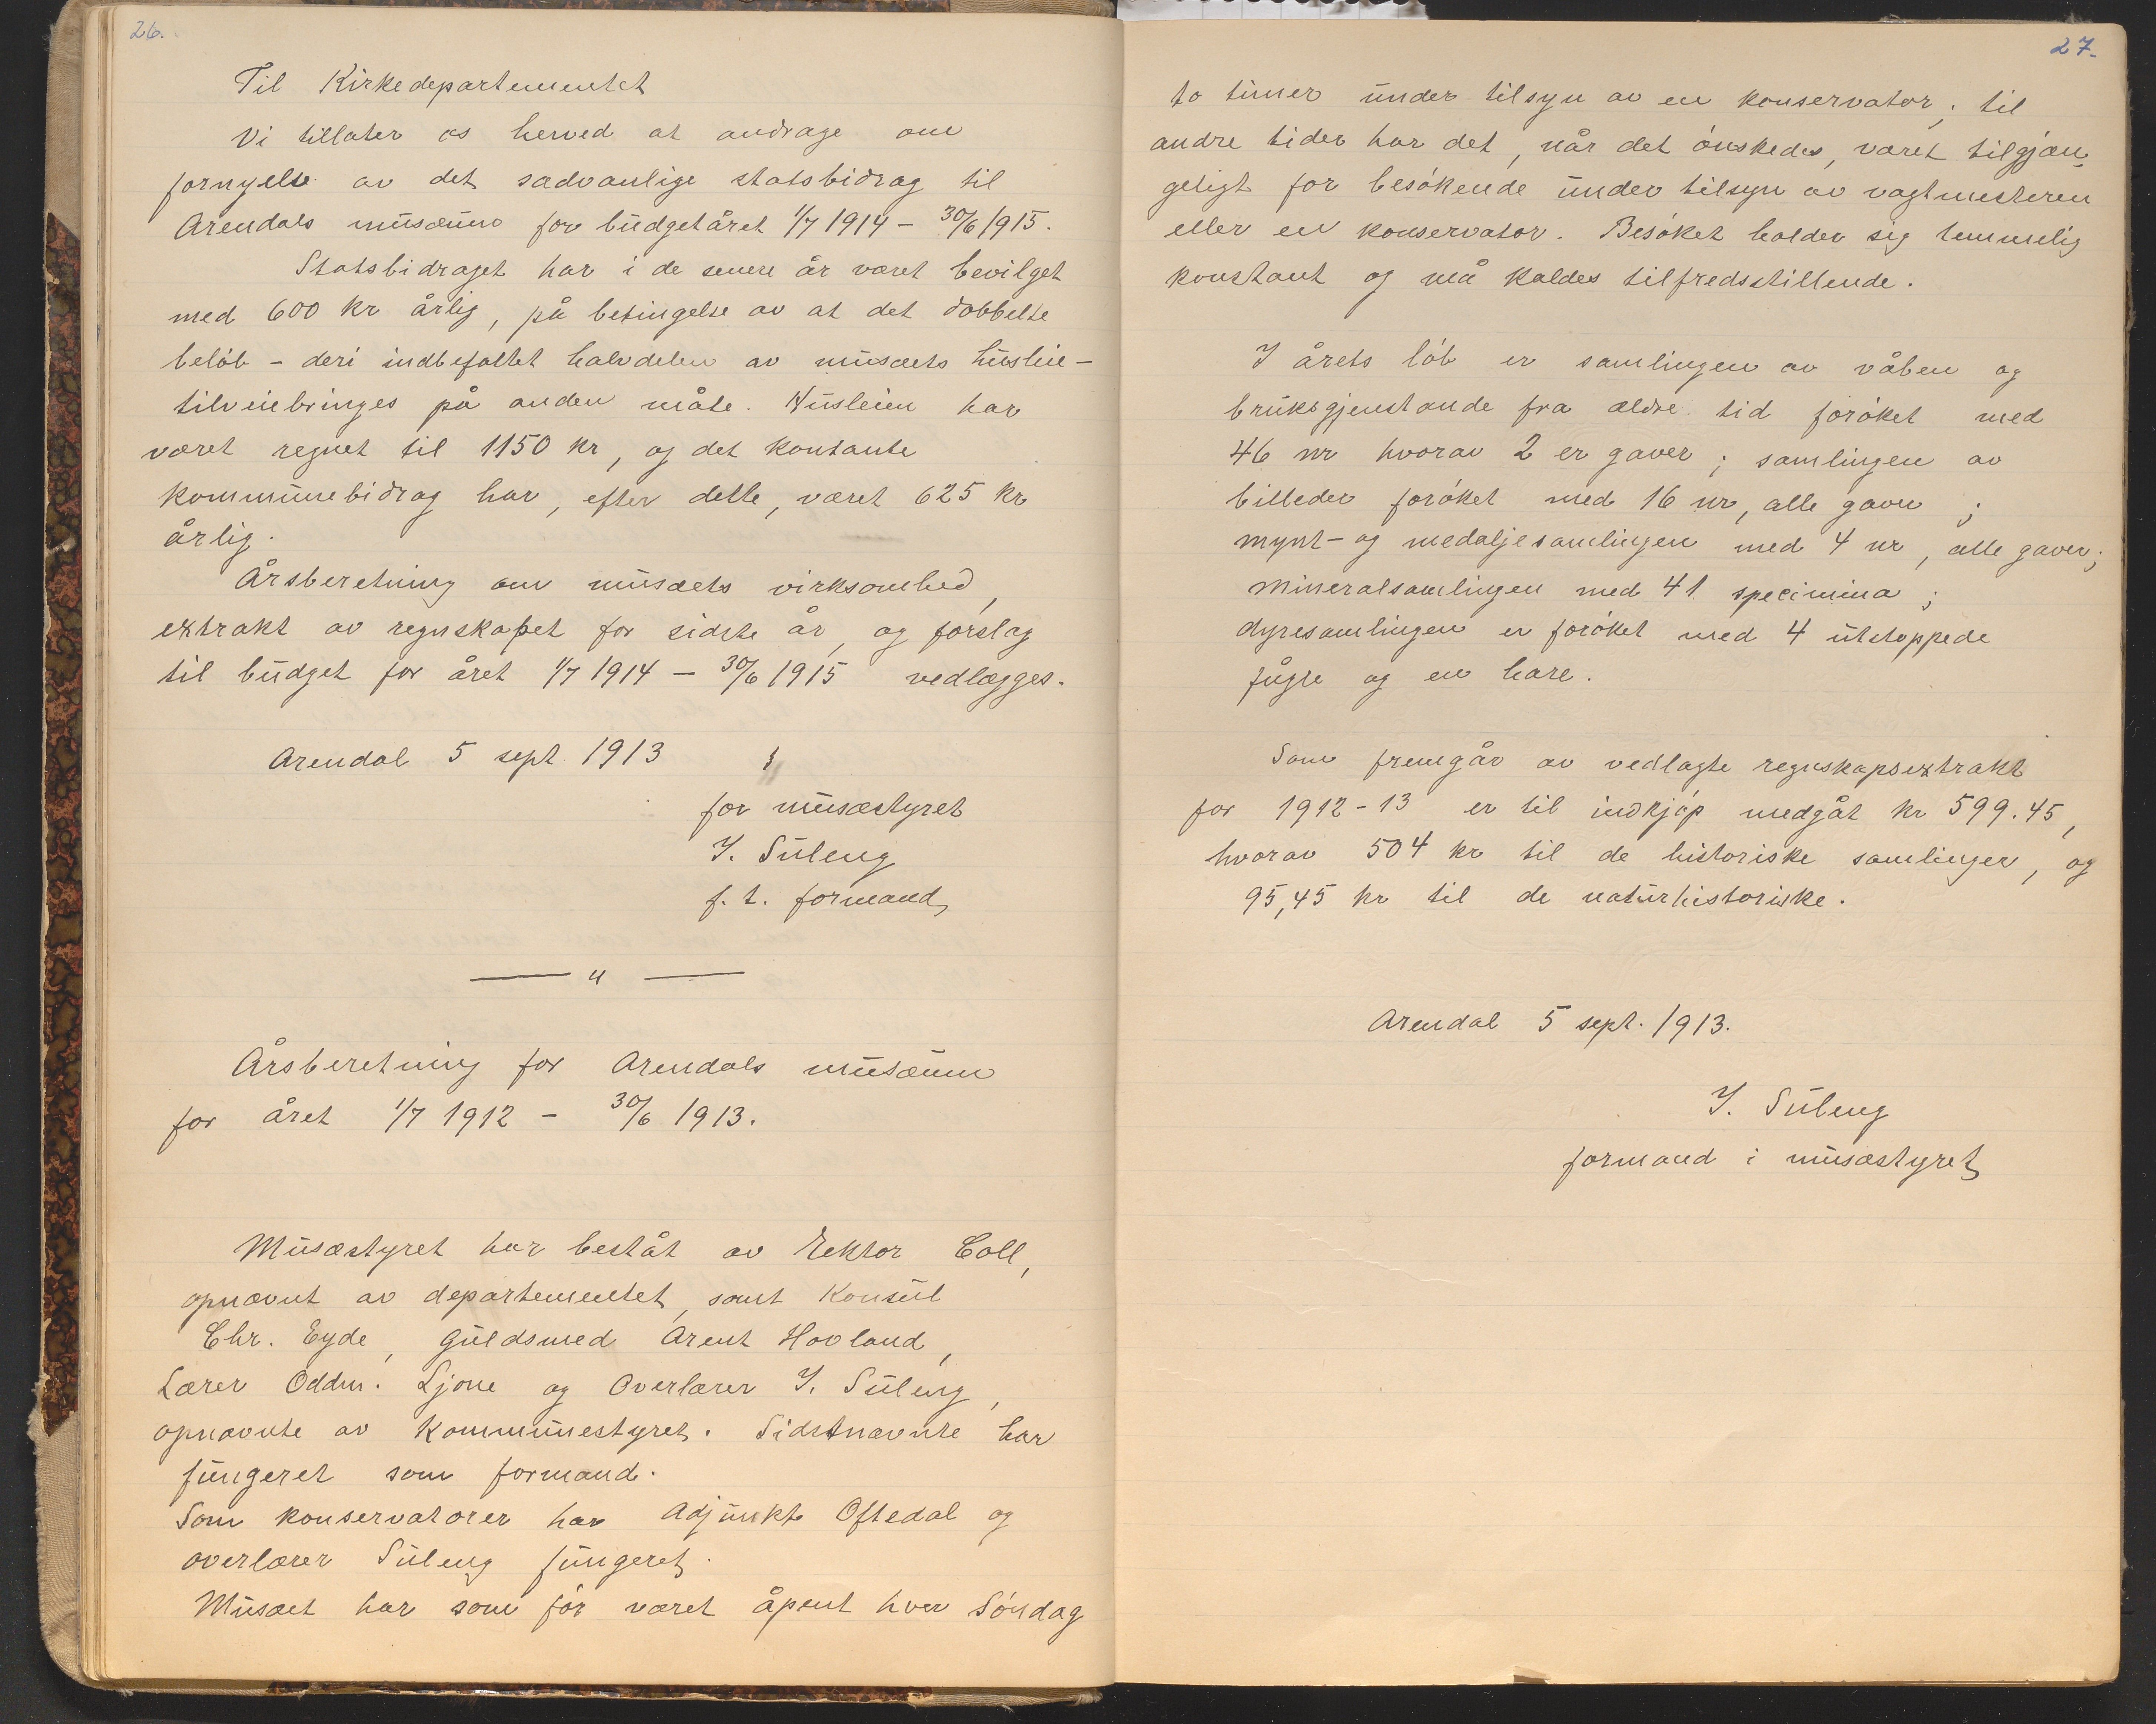 26.
Til Kirkedepartementet
Vi tillater os herved at andrage om
fornyelse av det sædvanlige statsbidrag til
Arendals musæum for budgetåret 1/7 1914 - 30/6 1915.
Statsbidraget har i de senere år været bevilget
med 600 kr årlig, på betingelse av at det dobbelte
beløb - deri indbefattet halvdelen av musæets husleie -
tilveiebringes på anden måte. Husleien har
været regnet til 1150 kr, og det kontante
kommunebidrag har, efter dette, været 625 kr
årlig.
Årsberetning om musæets virksomhed,
extrakt av regnskapet for sidste år, og forslag
til budget for året 1/7 1914 - 30/6 1915 vedlægges.
Arendal 5 sept. 1913
for musæstyret
I. Suleng
f. t. formand
— " —
Årsberetning for Arendals musæum
for året 1/7 1912 - 30/6 1913.
Musæstyret har beståt av rektor Coll,
opnævnt av departementet, samt Konsul
Chr. Eyde, Guldsmed Arent Hovland,
Lærer Oddm. Ljone og Overlærer I. Suleng,
opnævnte av Kommunestyret. Sidstnævnte har
fungeret som formand.
Som konservatorer har Adjunkt Oftedal og
overlærer Suleng fungeret.
Musæet har som før været åpent hver Søndag
27.
to timer under tilsyn av en konservator; til
andre tider har det, når det ónskedes, været tilgjæn-
geligt for besókende under tilsyn av vagtmesteren
eller en konservator. Besóket holder sig temmelig
konstant og må kaldes tilfredsstillende.
I årets lób er samlingen av våben og
bruksgjenstande fra ældre tid foróket med
46 nr hvorav 2 er gaver; samlingen av
billeder foróket med 16 nr, alle gaver;
mynt- og medaljesamlingen med 4 nr, alle gaver;
Mineralsamlingen med 41 specimina;
dyresamlingen er foróket med 4 utstoppede
fugle og en hare.
Som fremgår av vedlagte regnskapsextrakt
for 1912-13 er til indkjóp medgåt kr 599.45,
hvorav 504 kr til de historiske samlinger, og
95,45 kr til de naturhistoriske.
Arendal 5 sept. 1913.
I. Suleng
formand i musæstyret